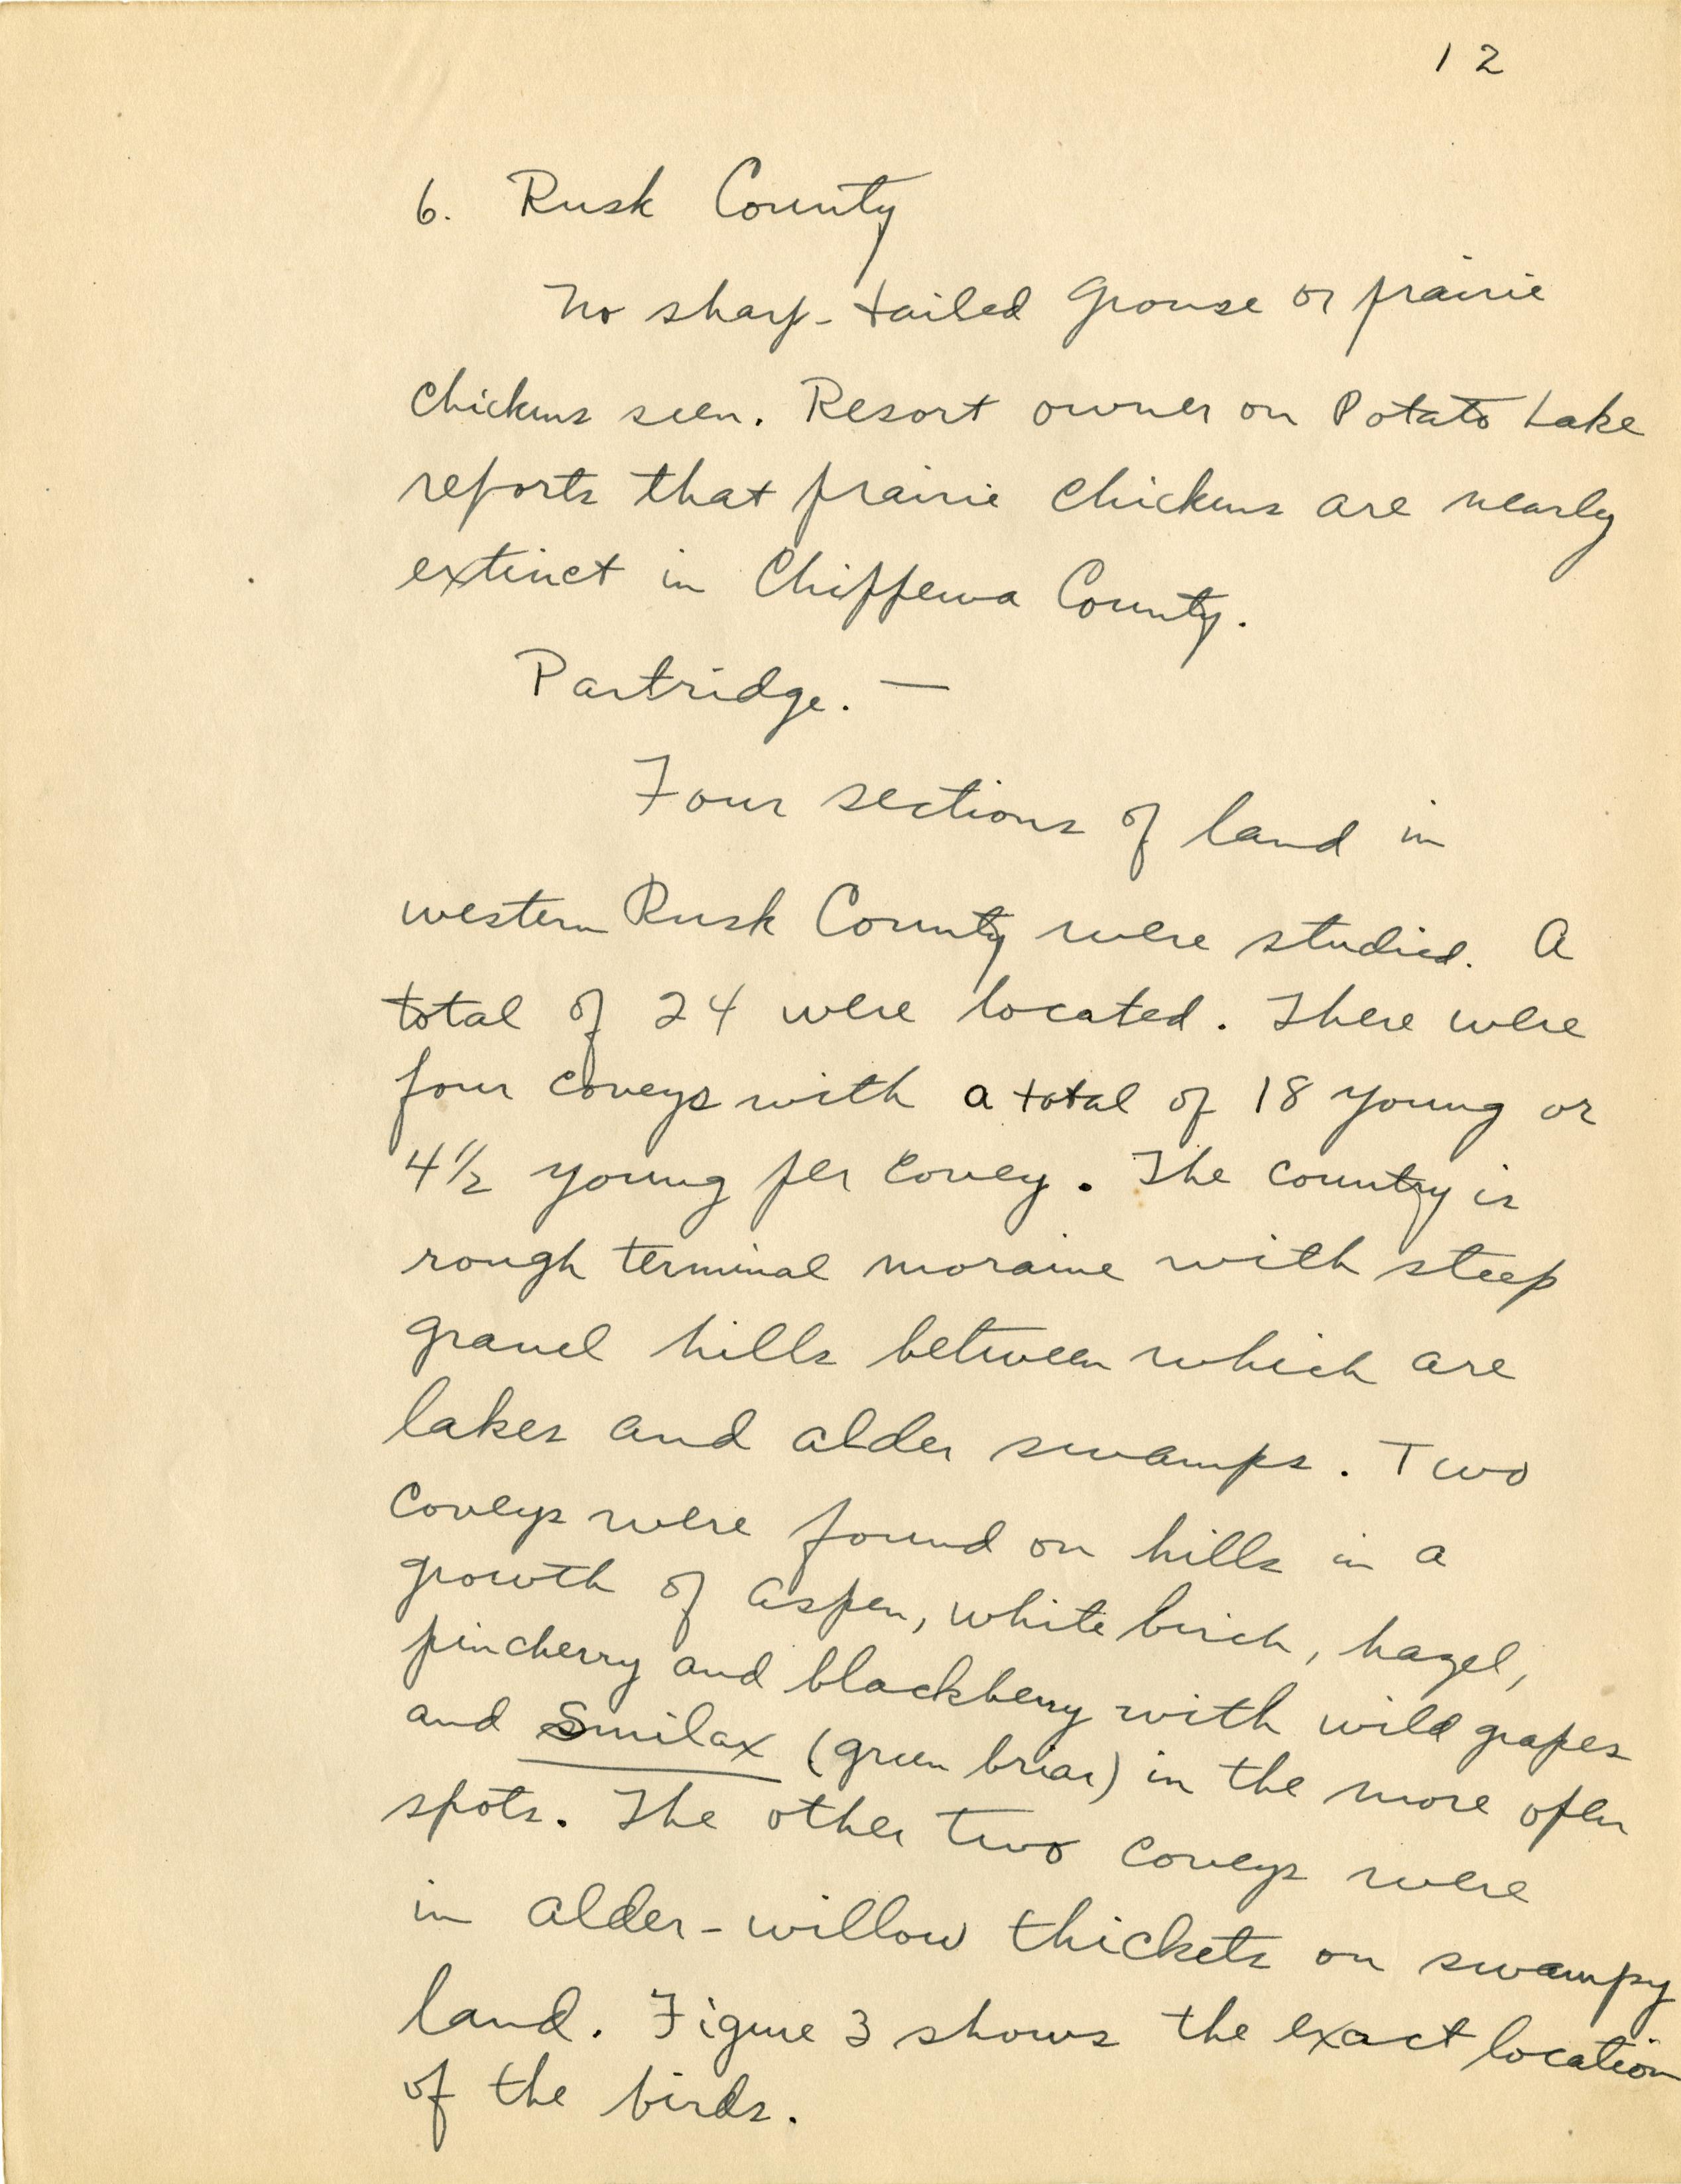 12
6. Rusk County
No sharp-tailed grouse or prairie
chickens seen. Resort owner on Potato Lake
reports that prairie chickens are nearly
extinct in Chippewa County.
Partridge. —
Four sections of land in
western Rusk County were studied. A
total of 24 were located. There were
four coveys with a total of 18 young or
4½ young per covey. The country is
rough terminal moraine with steep
gravel hills between which are
lakes and alder swamps. Two
coveys were found on hills in a
growth of aspen, white birch, hazel,
pincherry and blackberry with wild grapes
and Smilax (green briar) in the more open
spots. The other two coveys were
in alder-willow thickets on swampy
land. Figure 3 shows the exact location
of the birds.